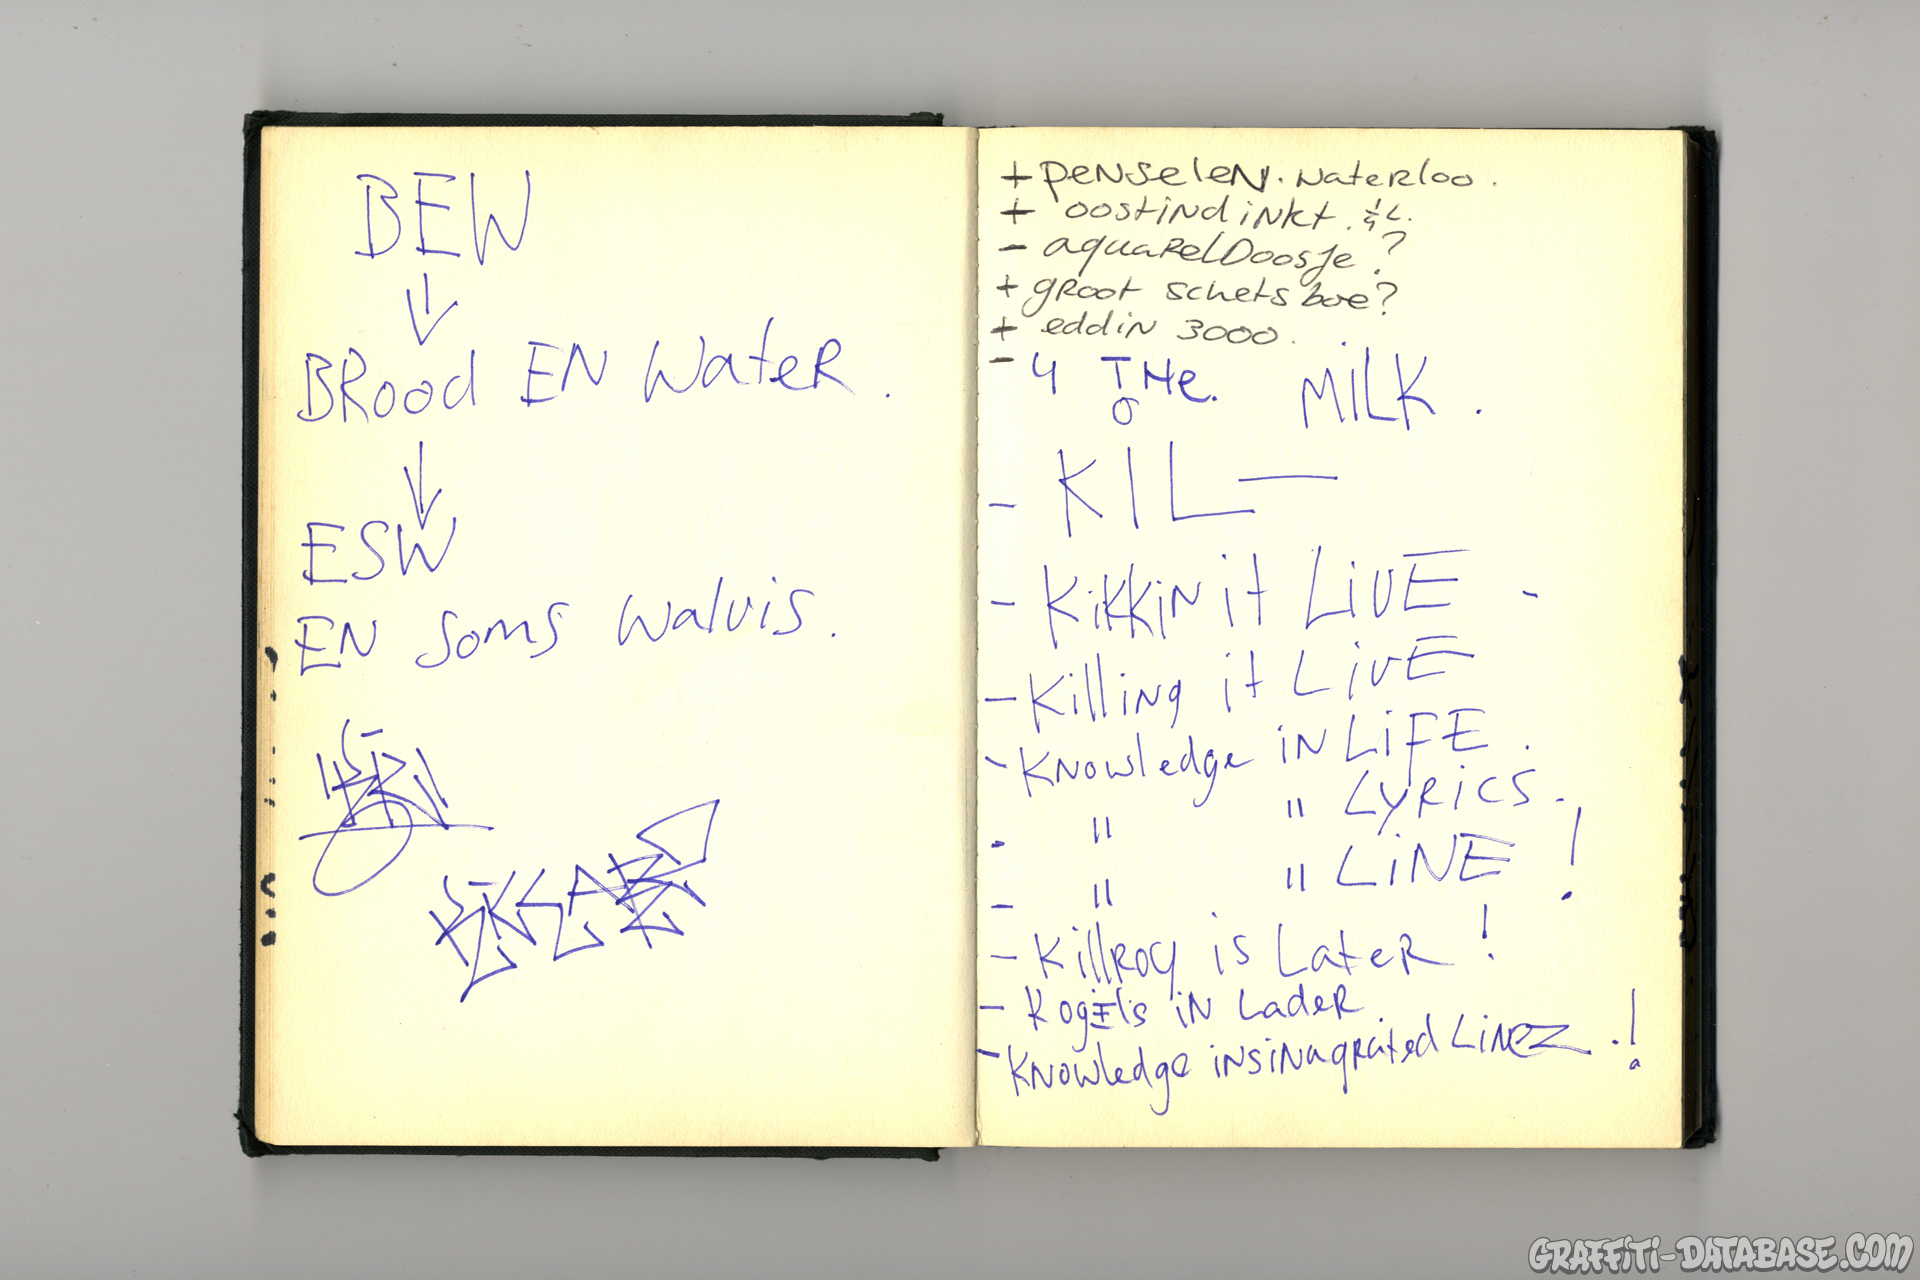 BEW
BROOD EN WATER.
ESW
EN SOMS WALVIS.
+ PENSELEN. WATERLOO.
+ OOSTINDINKT.
- AQUARELDOOSJE?
+ GROOT SCHETS boe?
+ eddin 3000.
- 4 THE. MILK.
- KIL—
- KIKKIN it LIVE -
- Killing it LIVE
- KNOWledge IN LIFE.
- " " LYRICS.
- " " LINE!
- KILLROY is LATER!
- KOGELS IN LADER
- KNOWledge INSINAGRATED LINEZ.!
GRAFFITI-DATABASE.COM